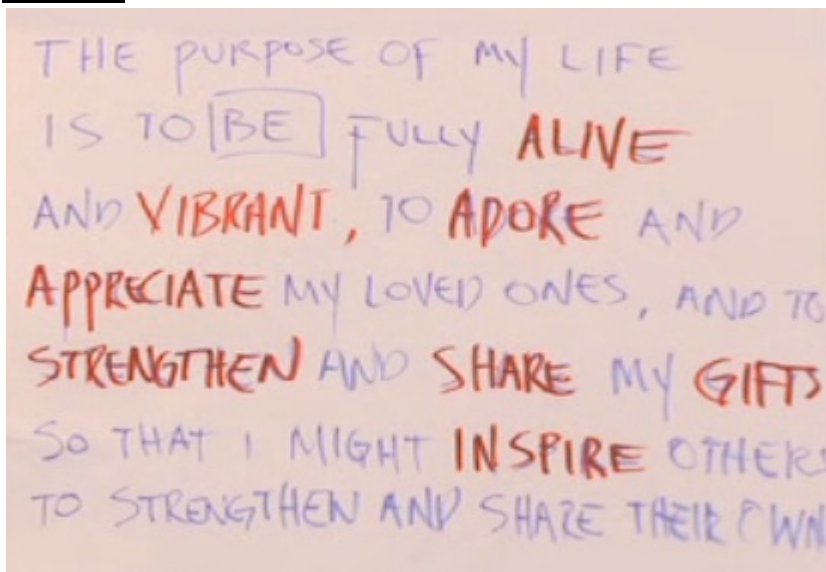 THE PURPOSE OF MY LIFE
IS TO BE FULLY ALIVE
AND VIBRANT, TO ADORE AND
APPRECIATE MY LOVED ONES, AND TO
STRENGTHEN AND SHARE MY GIFTS
SO THAT I MIGHT INSPIRE OTHERS
TO STRENGTHEN AND SHARE THEIR OWN